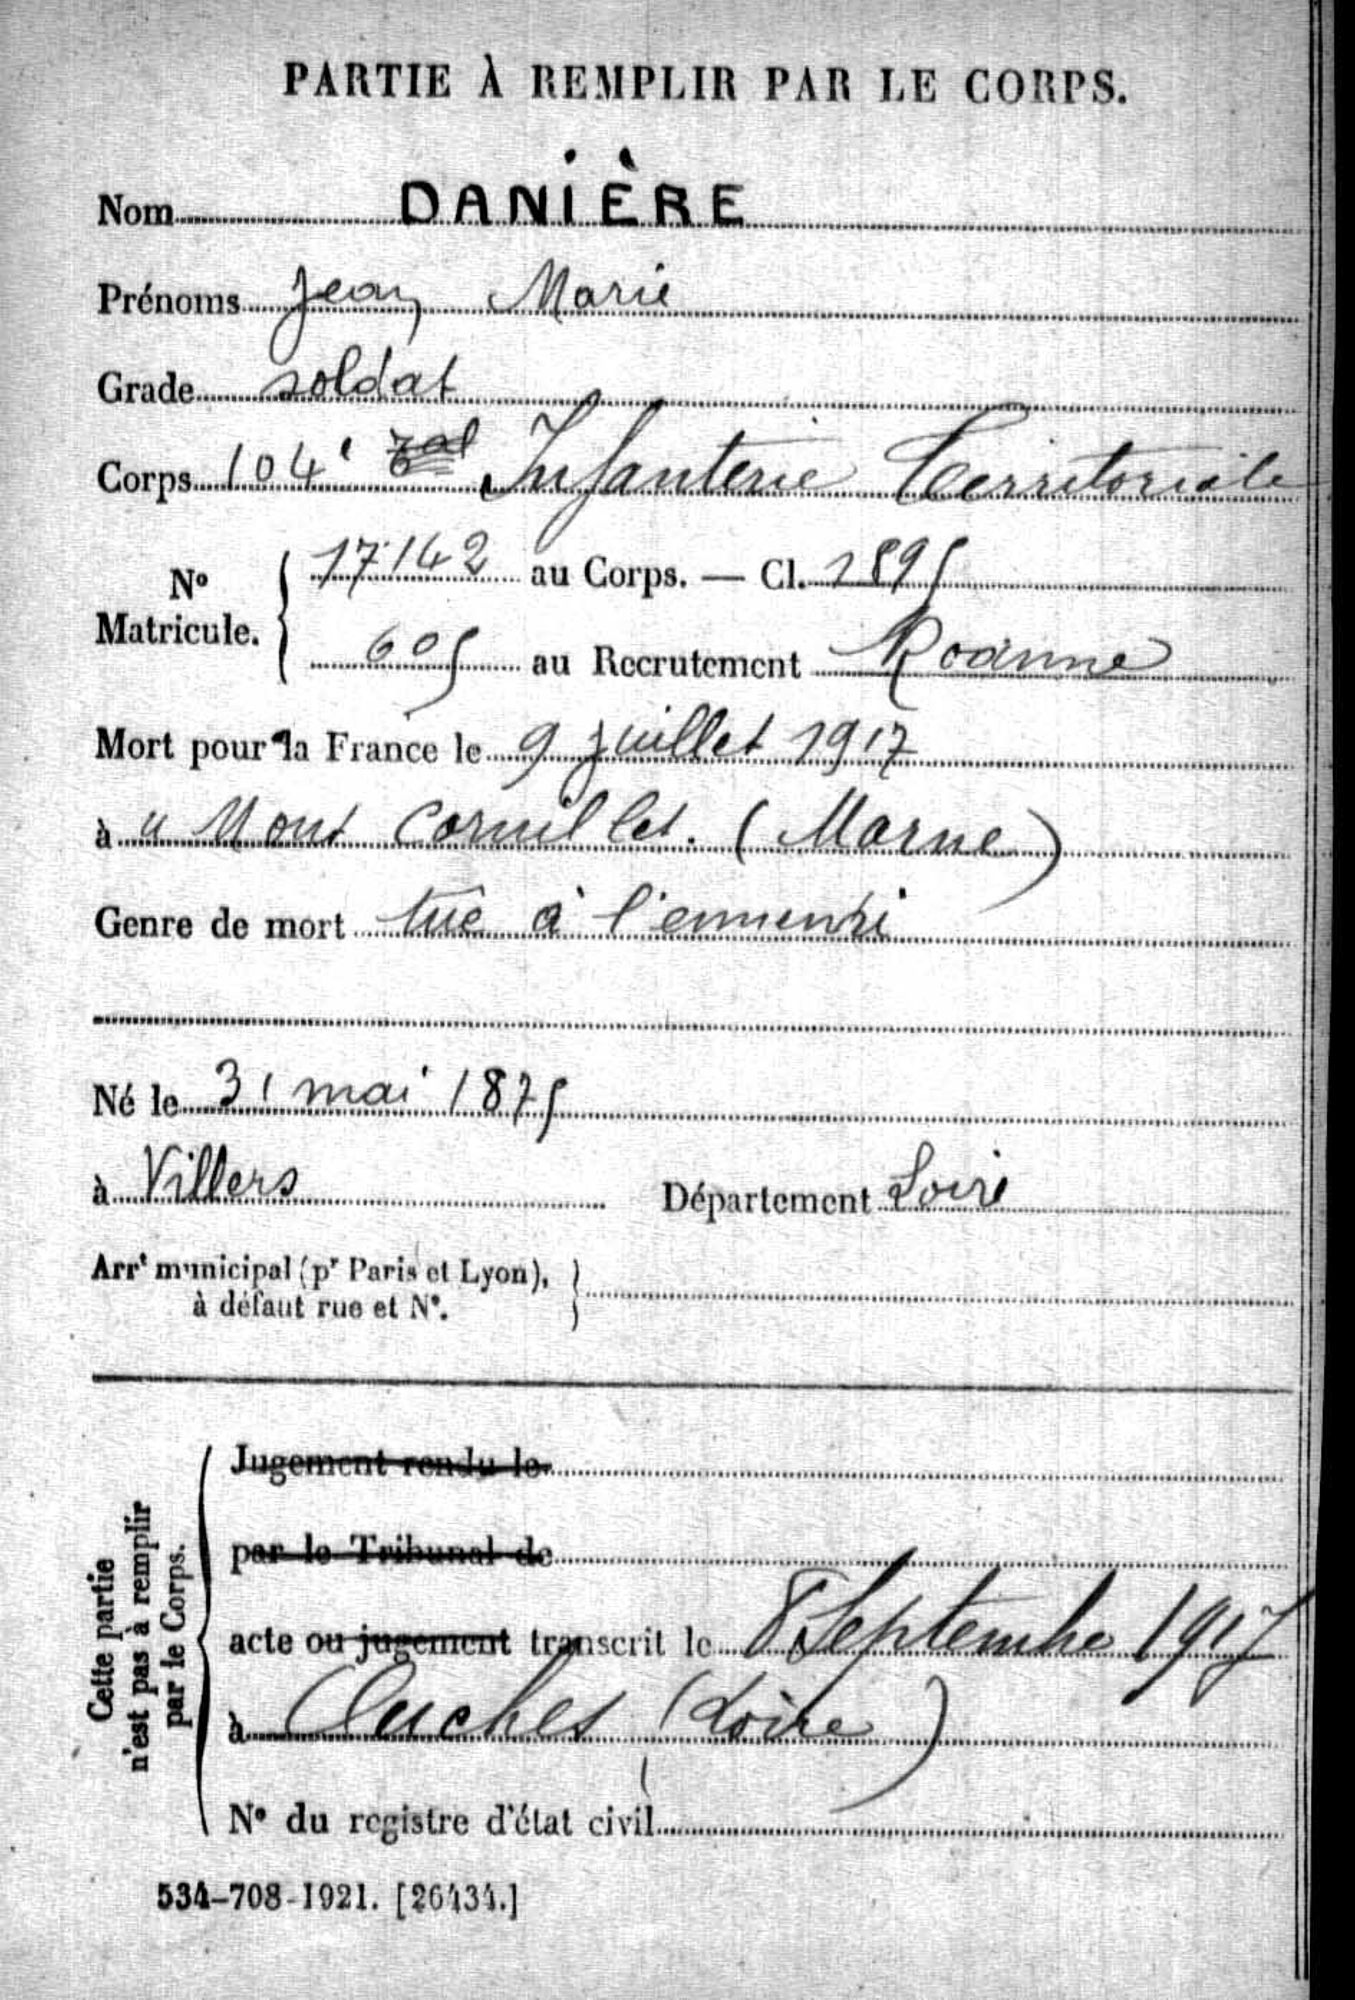 PARTIE À REMPLIR PAR LE CORPS.
Nom DANIÈRE
Prénoms Jean Marie
Grade soldat
Corps 104e Infanterie Territoriale
N° Matricule. 17142 au Corps. — Cl. 1895
605 au Recrutement Roanne
Mort pour la France le 9 juillet 1917
à Mont Cornillet. (Marne)
Genre de mort tué à l'ennemi
Né le 31 mai 1875
à Villers Département Loire
Arrt municipal (pr Paris et Lyon),
à défaut rue et N°.
Cette partie
n'est pas à remplir
par le Corps.
Jugement rendu le
par le Tribunal de
acte ou jugement transcrit le 8 Septembre 1917
à (Loire)
N° du registre d'état civil
534-708-1921. [26434.]